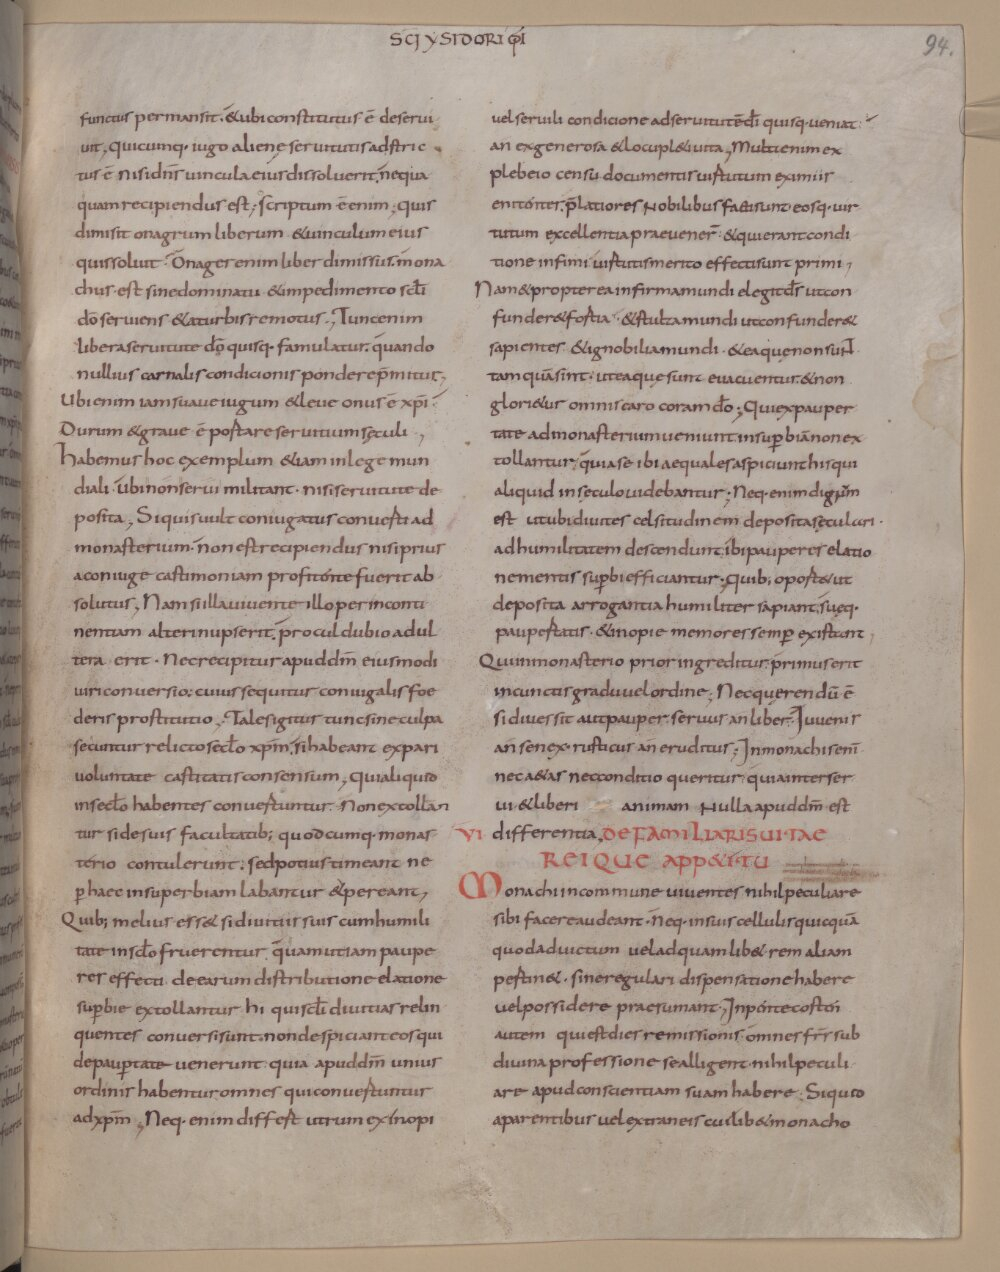 SC̅I YSIDORI EP̅I
94.
functus permansit. & ubi constitutus ē deserui
uit, quicumq· iugo alienę seruitutis adstric
tus ē nisi dn̄s uincula eius dissoluerit, nequa
quam recipiendus est; scriptum ē enim; quis
dimisit onagrum liberum & uinculum eius
quis soluit· Onager enim liber dimissus. mona
chus· est sine dominatu & impedimento scl̄i
dō seruiens & a turbis remotus·, Tunc enim
libera seruitute dō quisq· famulatur. quando
nullius carnalis condicionis pondere p̄mitur,
Ubi enim iam suaue iugum & leue onus ē xp̄i·
Durum & graue ē portare seruitium sęculi,
habemus hoc exemplum &iam in lege mun
diali· ubi non serui militant· nisi seruitute de
posita, Si quis uult coniugatus conuerti ad
monasterium· non est recipiendus nisi prius
a coniuge castimoniam profitente fuerit ab
solutus, Nam si illa uiuente illo per inconti
nentiam alteri nupserit. procul dubio adul
tera erit· Nec recipitur apud dm̄ eiusmodi
uiri conuersio; cuius sequitur coniugalis foe
deris prostitutio,· Tales igitur tunc sine culpa
secuntur relicto sec̄lo xp̄m, si habeant ex pari
uoluntate castitatis consensum, Qui aliquid
in sec̄lo habentes conuertuntur. Non extollan
tur si de suis facultatib; quodcumq· monas
terio contulerunt; sed potius timeant ne
p̱ haec in superbiam labantur & pereant,
Quib; melius ess& si diuitiis suis cum humili
tate in sc̄lo fruerentur. quam ut iam paupe
res effecti de earum distributione elatione
sup̱bie extollantur hi qui sc̄li diuitias relin
quentes conuersi sunt. non despiciant eos qui
de paup̱tate uenerunt quia apud dm̄ unius
ordinis habentur omnes qui conuertuntur
ad xp̄m, Neq· enim differt utrum ex inopi
uel seruili condicione ad seruitutē dī quisq· ueniat·
an ex generosa & locupl&i uita, Multi enim ex
plebeio censu documentis uirtutum eximiis
enitentes, p̄latiores nobilibus facti sunt· eosq· uir
tutum excellentia praeuener̄· & qui erant condi
tione infimi uirtutis merito effecti sunt primi,
Nam & propterea infirma mundi elegit ds̄ ut con
funder& fortia· & stulta mundi ut confunder&
sapientes & ignobilia mundi· & ea que non sunt
tamquā sint· ut ea que sunt euacuentur. & non
glori&ur omnis caro coram dō; Qui ex pauper
tate ad monasterium ueniunt in sup̱biā non ex
tollantur, quia se ibi aequales aspiciunt his qui
aliquid in seculo uidebantur; Neq· enim dignum
est ut ubi diuites celsitudinem deposita sęculari·
ad humilitatem descendunt, ibi pauperes elatio
ne mentis sup̱bi efficiantur; Quib; oport& ut
deposita arrogantia humiliter sapiant, suęq·
paupertatis· & inopie memores semp̱ existant,
Qui in monasterio prior ingreditur. primus erit
in cunctis gradu uel ordine; Nec querendū ē
si diues sit aut pauper. seruus an liber· Iuuenis
an senex· rusticus an eruditus; In monachis enī
nec a&as nec conditio queritur, quia inter ser
ui & liberi animam nulla apud dm̄ est
VI differentia, DE FAMILIARIS UITAE
REIQUE APP&ITU
Monachi in commune uiuentes nihil peculiare
sibi facere audeant. Neq· in suis cellulis quicquā
quod ad uictum uel ad quamlib& rem aliam
pertin&· sine regulari dispensatione habere
uel possidere praesumant, In pentecosten
autem qui est dies remissionis· omnes fr̄s sub
diuina professione se alligent. nihil peculi
are apud conscientiam suam habere; Si quid
a parentibus uel extraneis cuilib& monacho